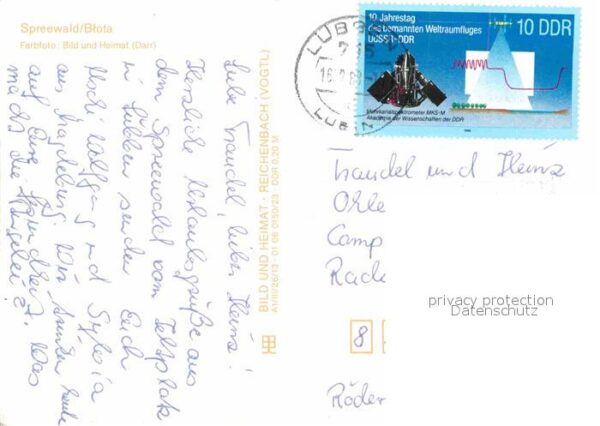 Spreewald/Błota
Farbfoto: Bild und Heimat (Darr)
Liebe Traudel, lieber Heinz!
Herzliche Urlaubsgrüße aus
dem Spreewald vom Zeltplatz
in Lübben senden Euch
Uschi Wolfgang und Sylvia
aus Magdeburg. Wir
auf Eure
macht die
BILD UND HEIMAT · REICHENBACH (VOGTL)
A1/III/26/13 · 01 06 0150/23 · DDR 0,20 M
LÜBBEN
10. Jahrestag
des bemannten Weltraumfluges
UdSSR-DDR
10 DDR
Mehrkanalspektrometer MKS-M
Akademie der Wissenschaften der DDR
Traudel und Heinz
Camp
8
Röder
privacy protection
Datenschutz